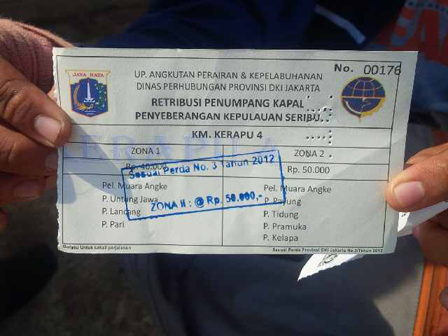 No. 00176
JAYA RAYA
UP. ANGKUTAN PERAIRAN & KEPELABUHANAN
DINAS PERHUBUNGAN PROVINSI DKI JAKARTA
RETRIBUSI PENUMPANG KAPAL
PENYEBERANGAN KEPULAUAN SERIBU
KM. KERAPU 4
ZONA 1
ZONA 2
Rp. 40.000
Rp. 50.000
Sesuai Perda No. 3 Tahun 2012
ZONA II : @ Rp. 50.000,-
Pel. Muara Angke
P. Untung Jawa
P. Lancang
P. Pari
Pel. Muara Angke
P. Payung
P. Tidung
P. Pramuka
P. Kelapa
Berlaku Untuk sekali perjalanan
Sesuai Perda Provinsi DKI Jakarta No.3/Tahun 2012